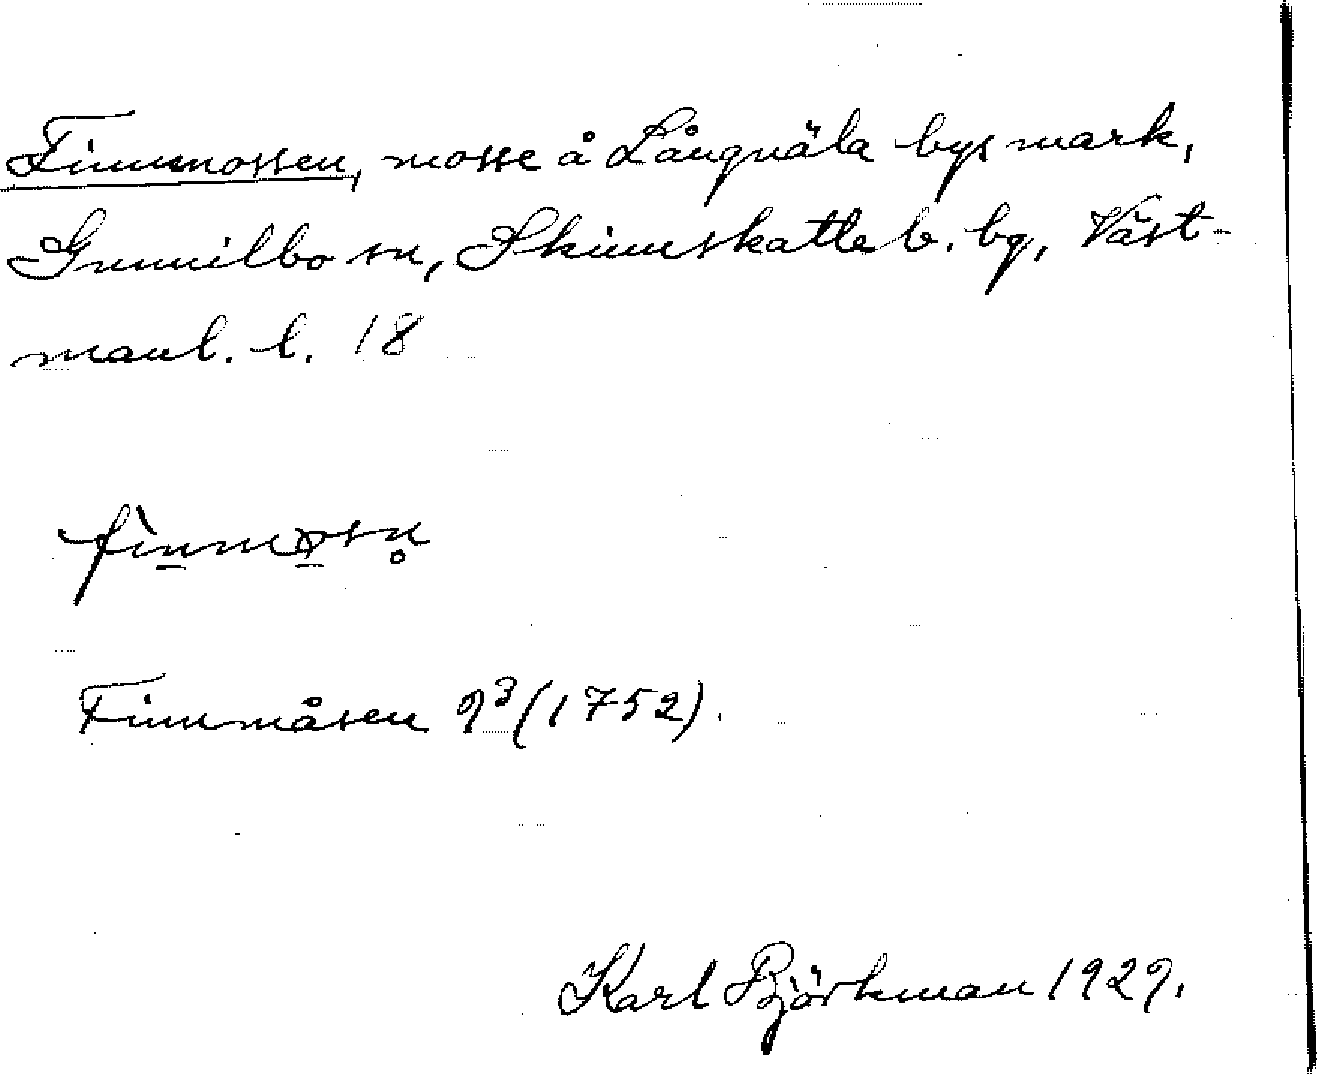 Finnmossen, mosse å Långnäla bys mark,
Gunnilbo sn, Skinnskatteb. bg, Väst-
manl. l. 18
finmɷsn̥
Finnmåsen 9³ (1752).
Karl Björkman 1929.